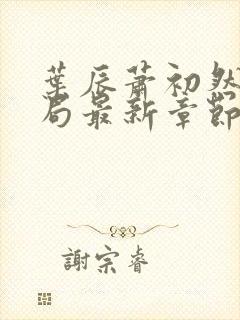 葉辰蕭初然
局最新章節
謝宗睿